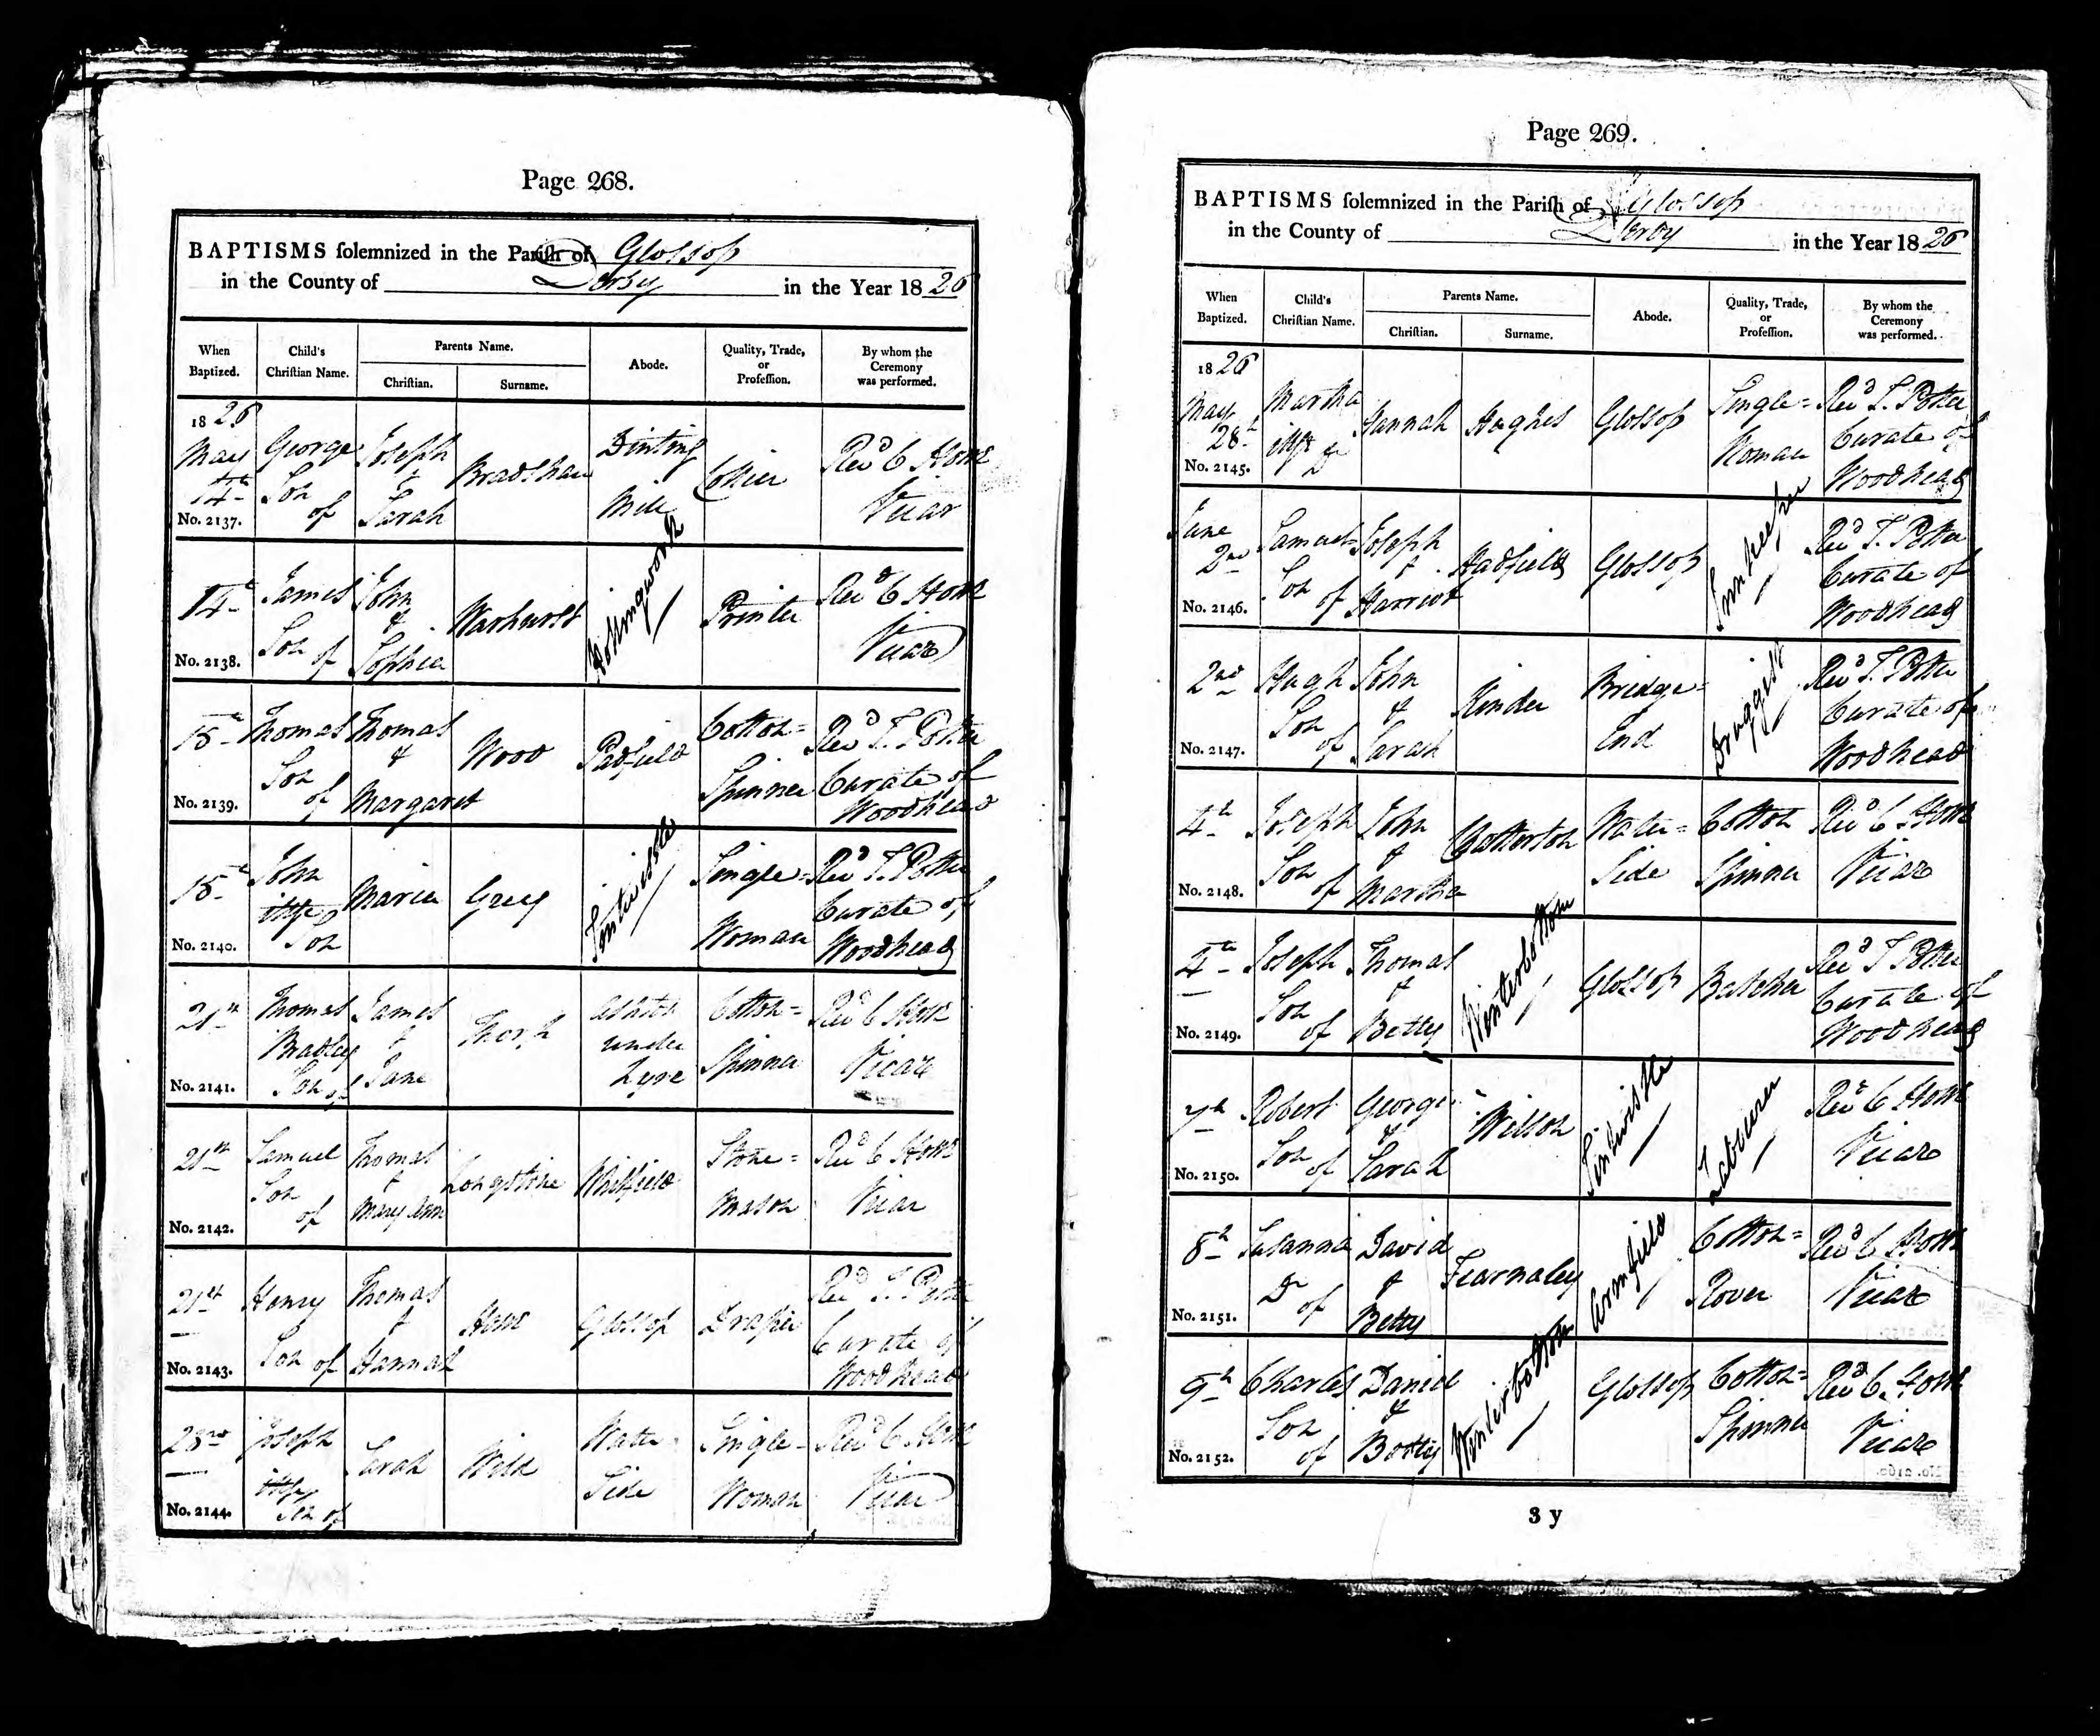 Page 268.
BAPTISMS solemnized in the Parish of Glossop
in the County of Derby in the Year 1826
When Baptized. Child's Christian Name. Parents Name. Christian. Surname. Abode. Quality, Trade, or Profession. By whom the Ceremony was performed.
1826
May 14th No. 2137. George Son of Joseph & Sarah Bradshaw Dinting Mill Collier Revd C Howe Vicar
14th No. 2138. James Son of John & Sophia Warhurst Hollingworth Printer Revd C Howe Vicar
15th No. 2139. Thomas Son of Thomas & Margaret Wood Padfield Cotton= Spinner Revd T. Potter Curate of Woodhead
15th No. 2140. John Son Maria Tintwistle Single= Woman Revd T. Potter Curate of Woodhead
21st No. 2141. Thomas Bradley Son of James & Jane Thorp Ashton under Lyne Cotton= Spinner Revd C Howe Vicar
21st No. 2142. Samuel Son of Thomas & Mary Ann Longstone Whitfield Stone= Mason Revd C Howe Vicar
21st No. 2143. Henry Son of Thomas & Hannah Howe Glossop Draper Revd T. Potter Curate of Woodhead
23rd No. 2144. Joseph Son of Sarah Wild Water Side Single= Woman Revd C Howe Vicar
Page 269.
BAPTISMS solemnized in the Parish of Glossop
in the County of Derby in the Year 1826
When Baptized. Child's Christian Name. Parents Name. Christian. Surname. Abode. Quality, Trade, or Profession. By whom the Ceremony was performed.
1826
May 28th No. 2145. Martha Dr Hannah Hughes Glossop Single= Woman Revd T. Potter Curate of Woodhead
June 2nd No. 2146. Samuel Son of Joseph & Harriot Hadfield Glossop Innkeeper Revd T. Potter Curate of Woodhead
2nd No. 2147. Hugh Son of John & Sarah Kinder Bridge= End Druggist Revd T. Potter Curate of Woodhead
4th No. 2148. Joseph Son of John & Martha Chatterton Water= Side Cotton Spinner Revd C Howe Vicar
4th No. 2149. Joseph Son of Thomas & Betty Winterbottom Glossop Butcher Revd T Potter Curate of Woodhead
7th No. 2150. Robert Son of George & Sarah Wilson Tintwistle Labourer Revd C Howe Vicar
8th No. 2151. Susanna Dr of David & Betty Fearnaley Armfield Cotton= Rover Revd C Howe Vicar
9th No. 2152. Charles Son of Daniel & Betty Winterbottom Glossop Cotton= Spinner Revd C. Howe Vicar
3 y